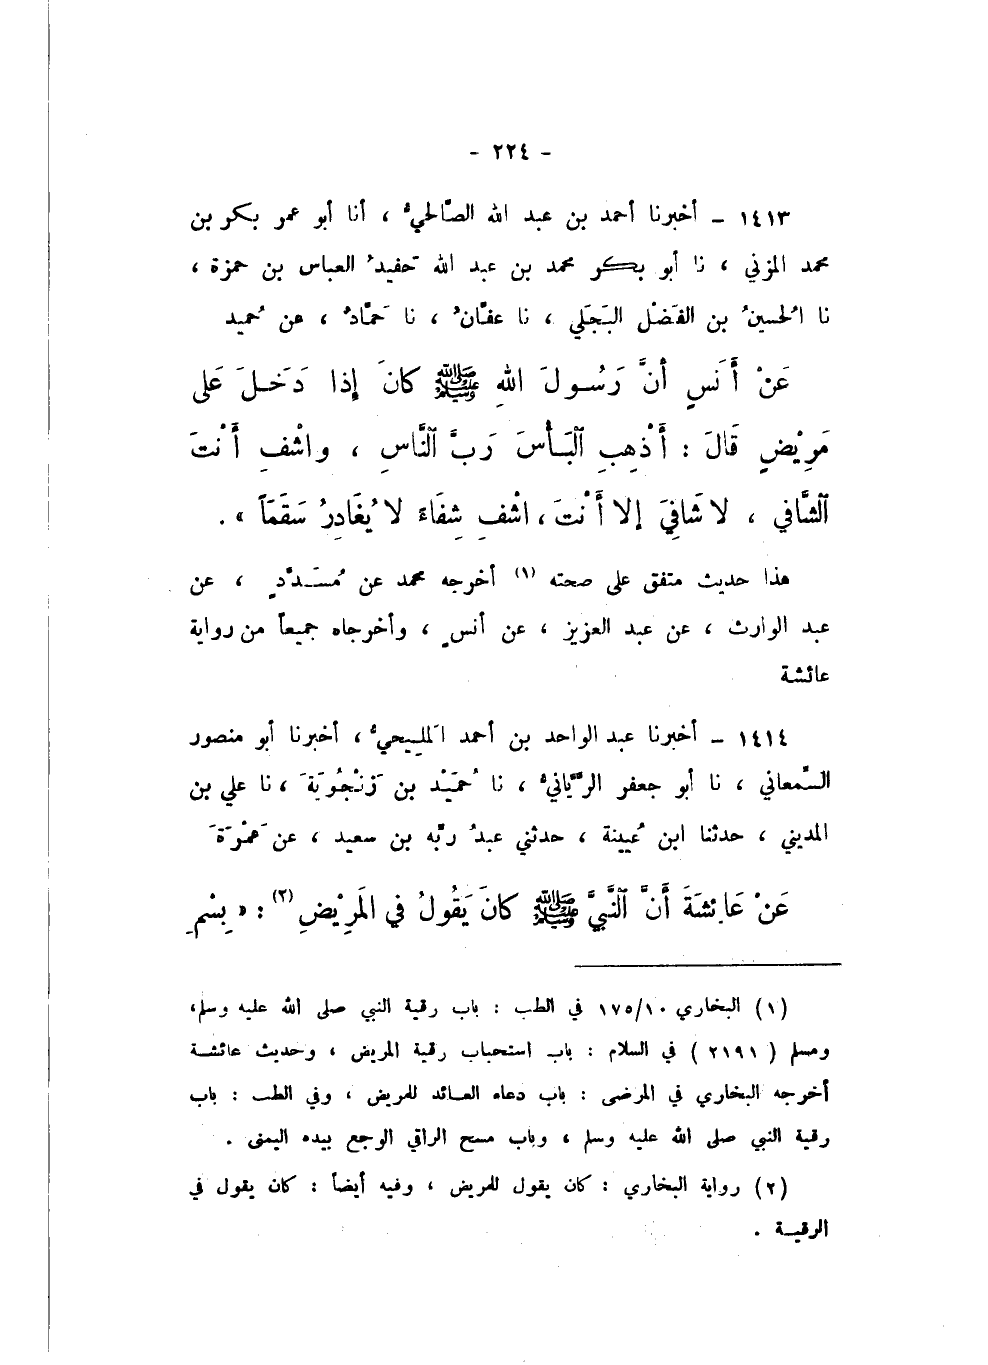 - ٢٢٤ -
١٤١٣ - أخبرنا أحمد بن عبد الله الصَّالحيُّ ، أنا أبو عمر بكر بن
محمد المزني ، نا أبو بكر محمد بن عبد الله حَفيدُ العباس بن حمزة ،
نا الحُسينُ بن الفَضْل البَجَلي ، نا عفَّانُ ، نا حَمَّادُ ، عن حُميد
عَنْ أَنَسٍ أَنَّ رَسُولَ اللهِ ﷺ كَانَ إِذا دَخَلَ عَلى
مَرِيْضٍ قَالَ : أَذْهِبِ ٱلبَأْسَ رَبَّ ٱلنَّاسِ ، واشْفِ أَنْتَ
ٱلشَّافي ، لا شَافِيَ إلا أَنْتَ ، اشْفِ شِفَاءً لا يُغَادِرُ سَقَمَاً » .
هذا حديث متفق على صحته (١) أخرجه محمد عن مُسَدَّدٍ ، عن
عبد الوارث ، عن عبد العزيز ، عن أنسٍ ، وأخرجاه جميعاً من رواية
عائشة
١٤١٤ - أخبرنا عبد الواحد بن أحمد المَلِيحيُّ ، أخبرنا أبو منصور
السَّمعاني ، نا أبو جعفر الرَّيَّانيُّ ، نا حُمَيْد بن زَنْجُويَةَ ، نا علي بن
المديني ، حدثنا ابن عُيينة ، حدثني عبدُ ربِّه بن سعيد ، عن عَمْرَةَ
عَنْ عَائِشَةَ أَنَّ ٱلنَّبيَّ ﷺ كَانَ يَقُولُ في المَرِيْضِ (٢) : « بِسْمِ
(١) البخاري ١٧٥/١٠ في الطب : باب رقية النبي صلى الله عليه وسلم،
ومسلم ( ٢١٩١ ) في السلام : باب استحباب رقية المريض ، وحديث عائشة
أخرجه البخاري في المرضى : باب دعاء العائد للمريض ، وفي الطب : باب
رقية النبي صلى الله عليه وسلم ، وباب مسح الراقي الوجع بيده اليمنى .
(٢) رواية البخاري : كان يقول للمريض ، وفيه أيضاً : كان يقول في
الرقية .